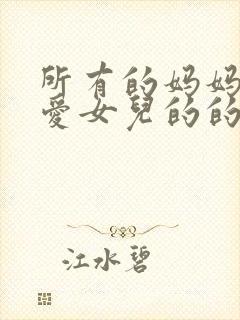 所有的妈妈
爱女兒的的
江水碧